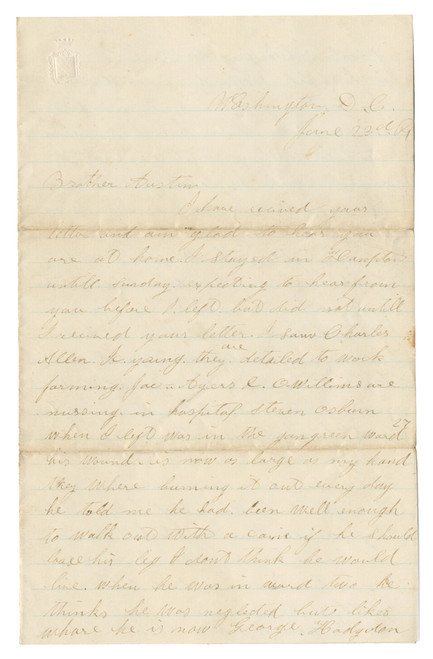 Washington, D. C.
June 23rd 64
Brother Austin
I have recived your
letter and am glad to hear you
are at home I stayed in Hampton
untill sunday. expecting to hear from
you before I left but did not untill
I recived your letter. I saw Charles
Allen H. they are detaled to work
farming. Ayers & O Willims are
nursing in hospital steven osburn
when I left was in the gangreen ward 27
his wound is now as large as my hand
they where burning it out evry day
he told me he had been well enough
to walk out with a cane if he should
lose his leg I dont think he would
live. when he was in ward two he
thinks he was neglected but likes
whare he is now George Hodgdon